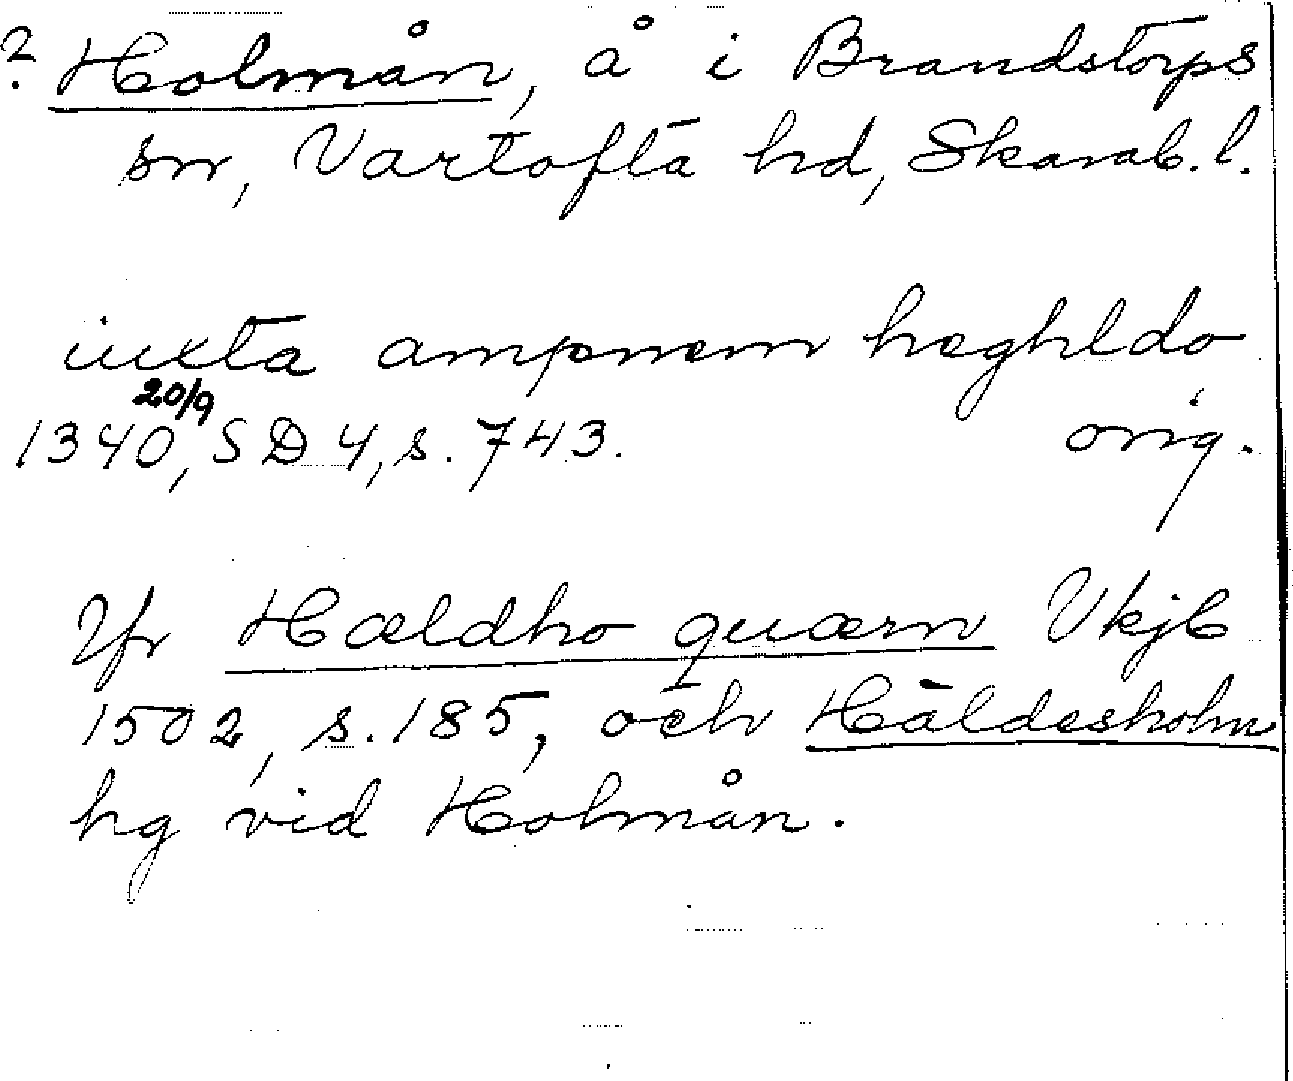 ? Holmån, å i Brandstorps
sn, Vartofta hd, Skarab. l.
iuxta ampnem heghldo
20/9
1340, SD 4, s. 743. orig.
Jfr Hældho quærn Vkjb
1502, s. 185, och Häldesholm
hg vid Holmån.